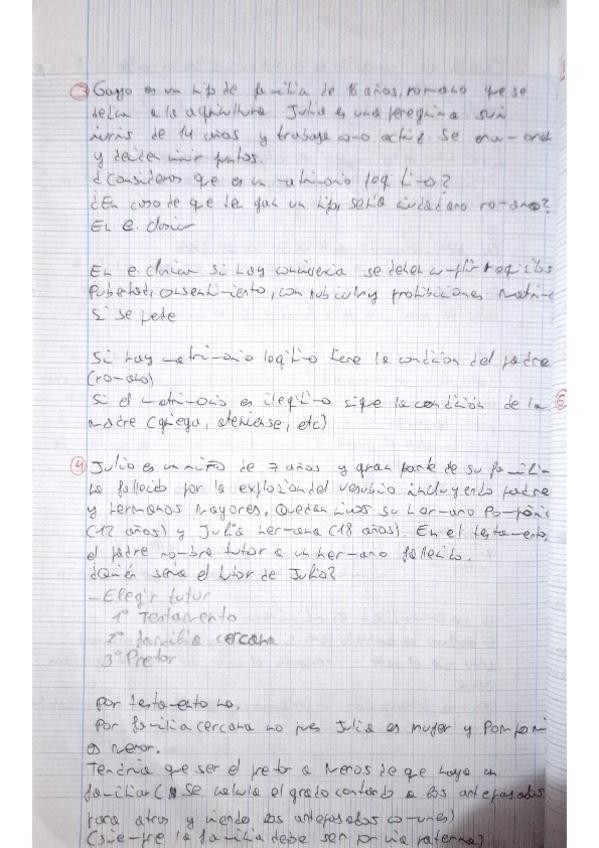 ③ Gayo es un hijo de familia de 16 años, romano que se
dedica a la agricultura. Julia es una peregrina sui
iuris de 14 años y trabaja como actriz. Se enamoran
y deciden vivir juntos.
¿Consideras que es un matrimonio legítimo?
¿En caso de que tengan un hijo, sería ciudadano romano?
En e. clásico

En e. clásico si hay convivencia se deben cumplir requisitos
pubertad, consentimiento, conubium y prohibiciones
Si se puede

Si hay matrimonio legítimo tiene la condición del padre
(romano)
Si el matrimonio es ilegítimo sigue la condición de la
madre (griega, ateniense, etc)

④ Julio es un niño de 7 años y gran parte de su familia
ha fallecido por la explosión del vesubio incluyendo padre
y hermanos mayores. Quedan vivos su hermano Pomponio
(12 años) y Julia hermana (18 años). En el testamento,
el padre nombra tutor a un hermano fallecido.
¿Quién sería el tutor de Julio?
- Elegir tutor
1º Testamento
2º familia cercana
3º Pretor

Por testamento no.
Por familia cercana no pues Julia es mujer y Pomponi
es menor.
Tendría que ser el pretor a menos de que haya un
familiar (se calcula el grado contando a los antepasados
para atrás y viendo los antepasados comunes)
(siempre la familia debe ser por vía paterna)
⑥